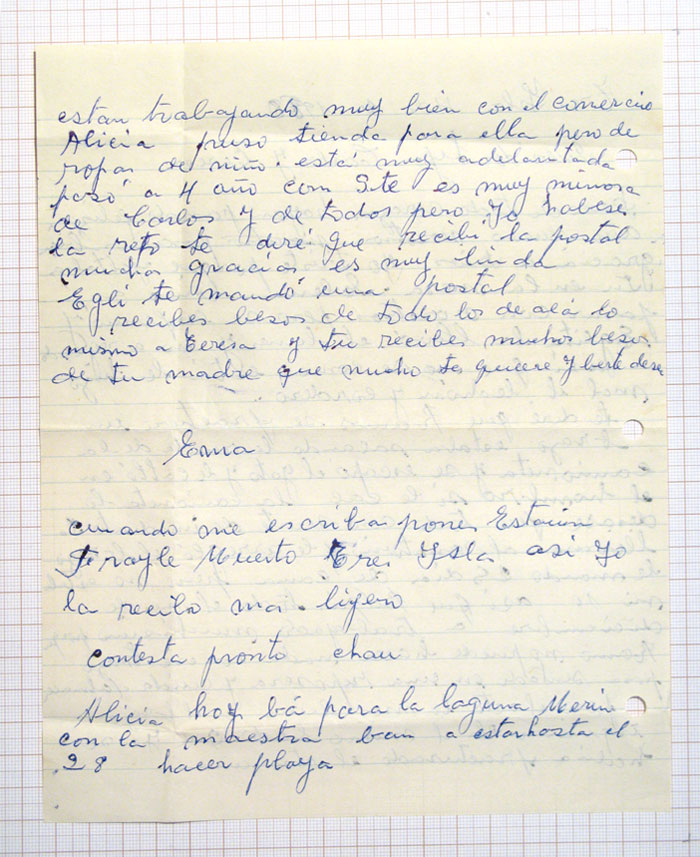 estan trabajando muy bien con el comercio
Alicia puso tienda para ella pero de
ropas de niño. está muy adelantada
pasó a 4 año con Ste es muy minosa
de Carlos y de todos pero yo habese
la reto te diré que recibí la postal
muchas gracias es muy linda
Egli te mandó una postal
recibes besos de todo los de acá lo
mismo a Teresa y tu recibes muchos besos
de tu madre que mucho te quiere y berte desea
Ema
cuando me escribas pones Estacion
Frayle Muerto Tres Ysla asi yo
la recibo mas ligero
contesta pronto chau
Alicia hoy bá para la laguna Merin
con la maestra ban a estar hasta el
28 hacer playa